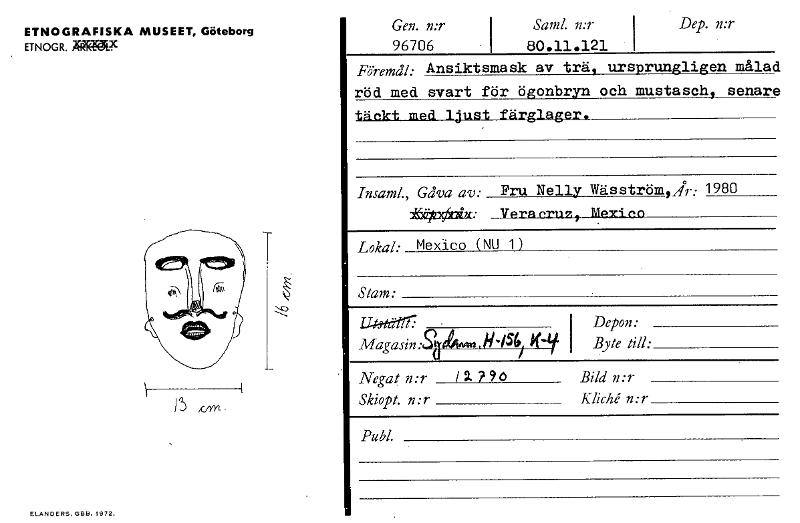 ETNOGRAFISKA MUSEET, Göteborg
ETNOGR. ARKEOL.
Gen. n:r
96706
Saml. n:r
80.11.121
Dep. n:r
Föremål: Ansiktsmask av trä, ursprungligen målad
röd med svart för ögonbryn och mustasch, senare
täckt med ljust färglager.
Insaml., Gåva av: Fru Nelly Wäsström, År: 1980
Köpt från: Veracruz, Mexico
Lokal: Mexico (NU 1)
Stam:
Utställt:
Magasin: Sydam. H-156, K-4
Depon:
Byte till:
Negat n:r 12790
Skiopt. n:r
Bild n:r
Kliché n:r
Publ.
16 cm.
13 cm.
ELANDERS, GBB. 1972.